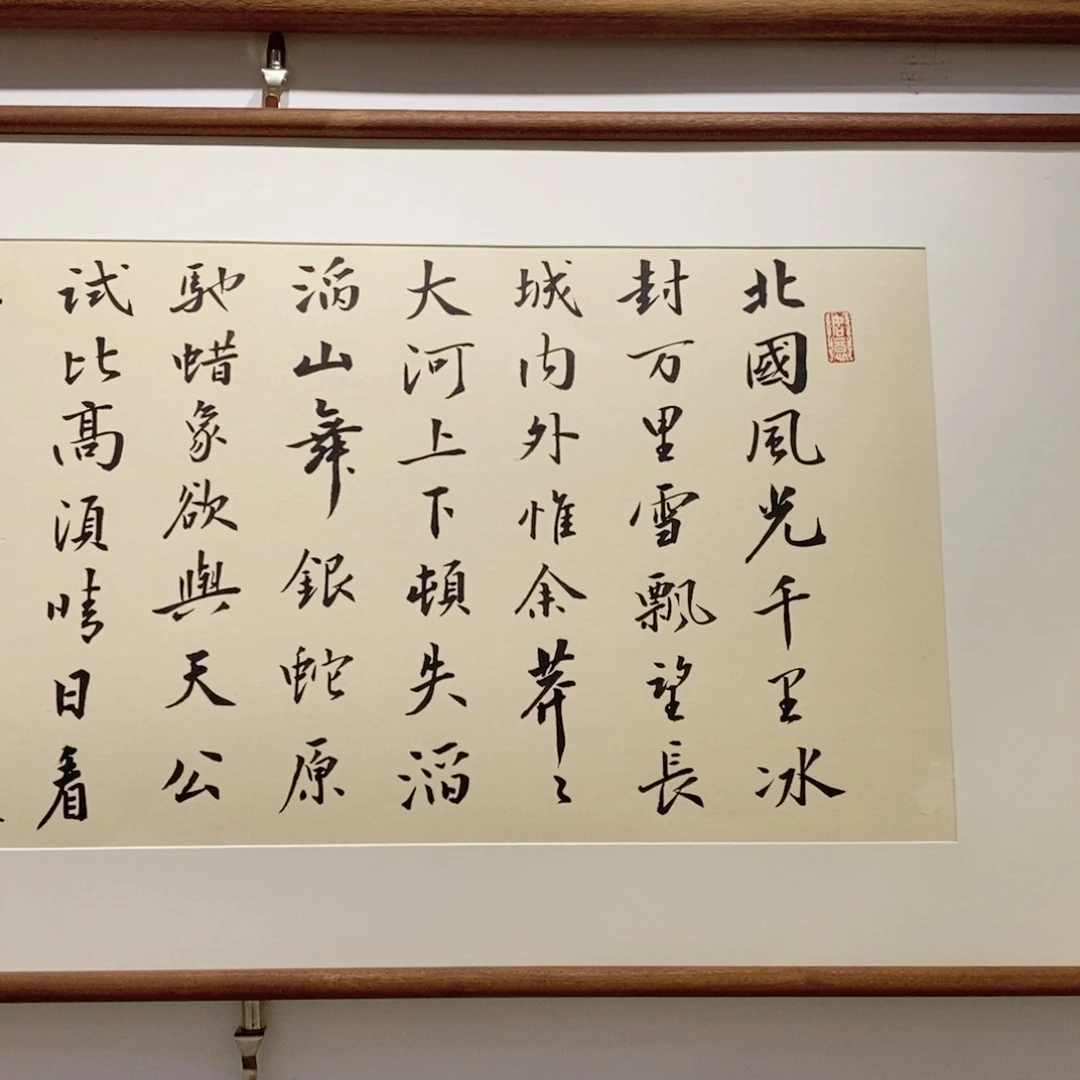 北國風光千里冰
封万里雪飄望長
城内外惟余莽〻
大河上下頓失滔
滔山舞銀蛇原
馳蜡象欲與天公
試比高須晴日看